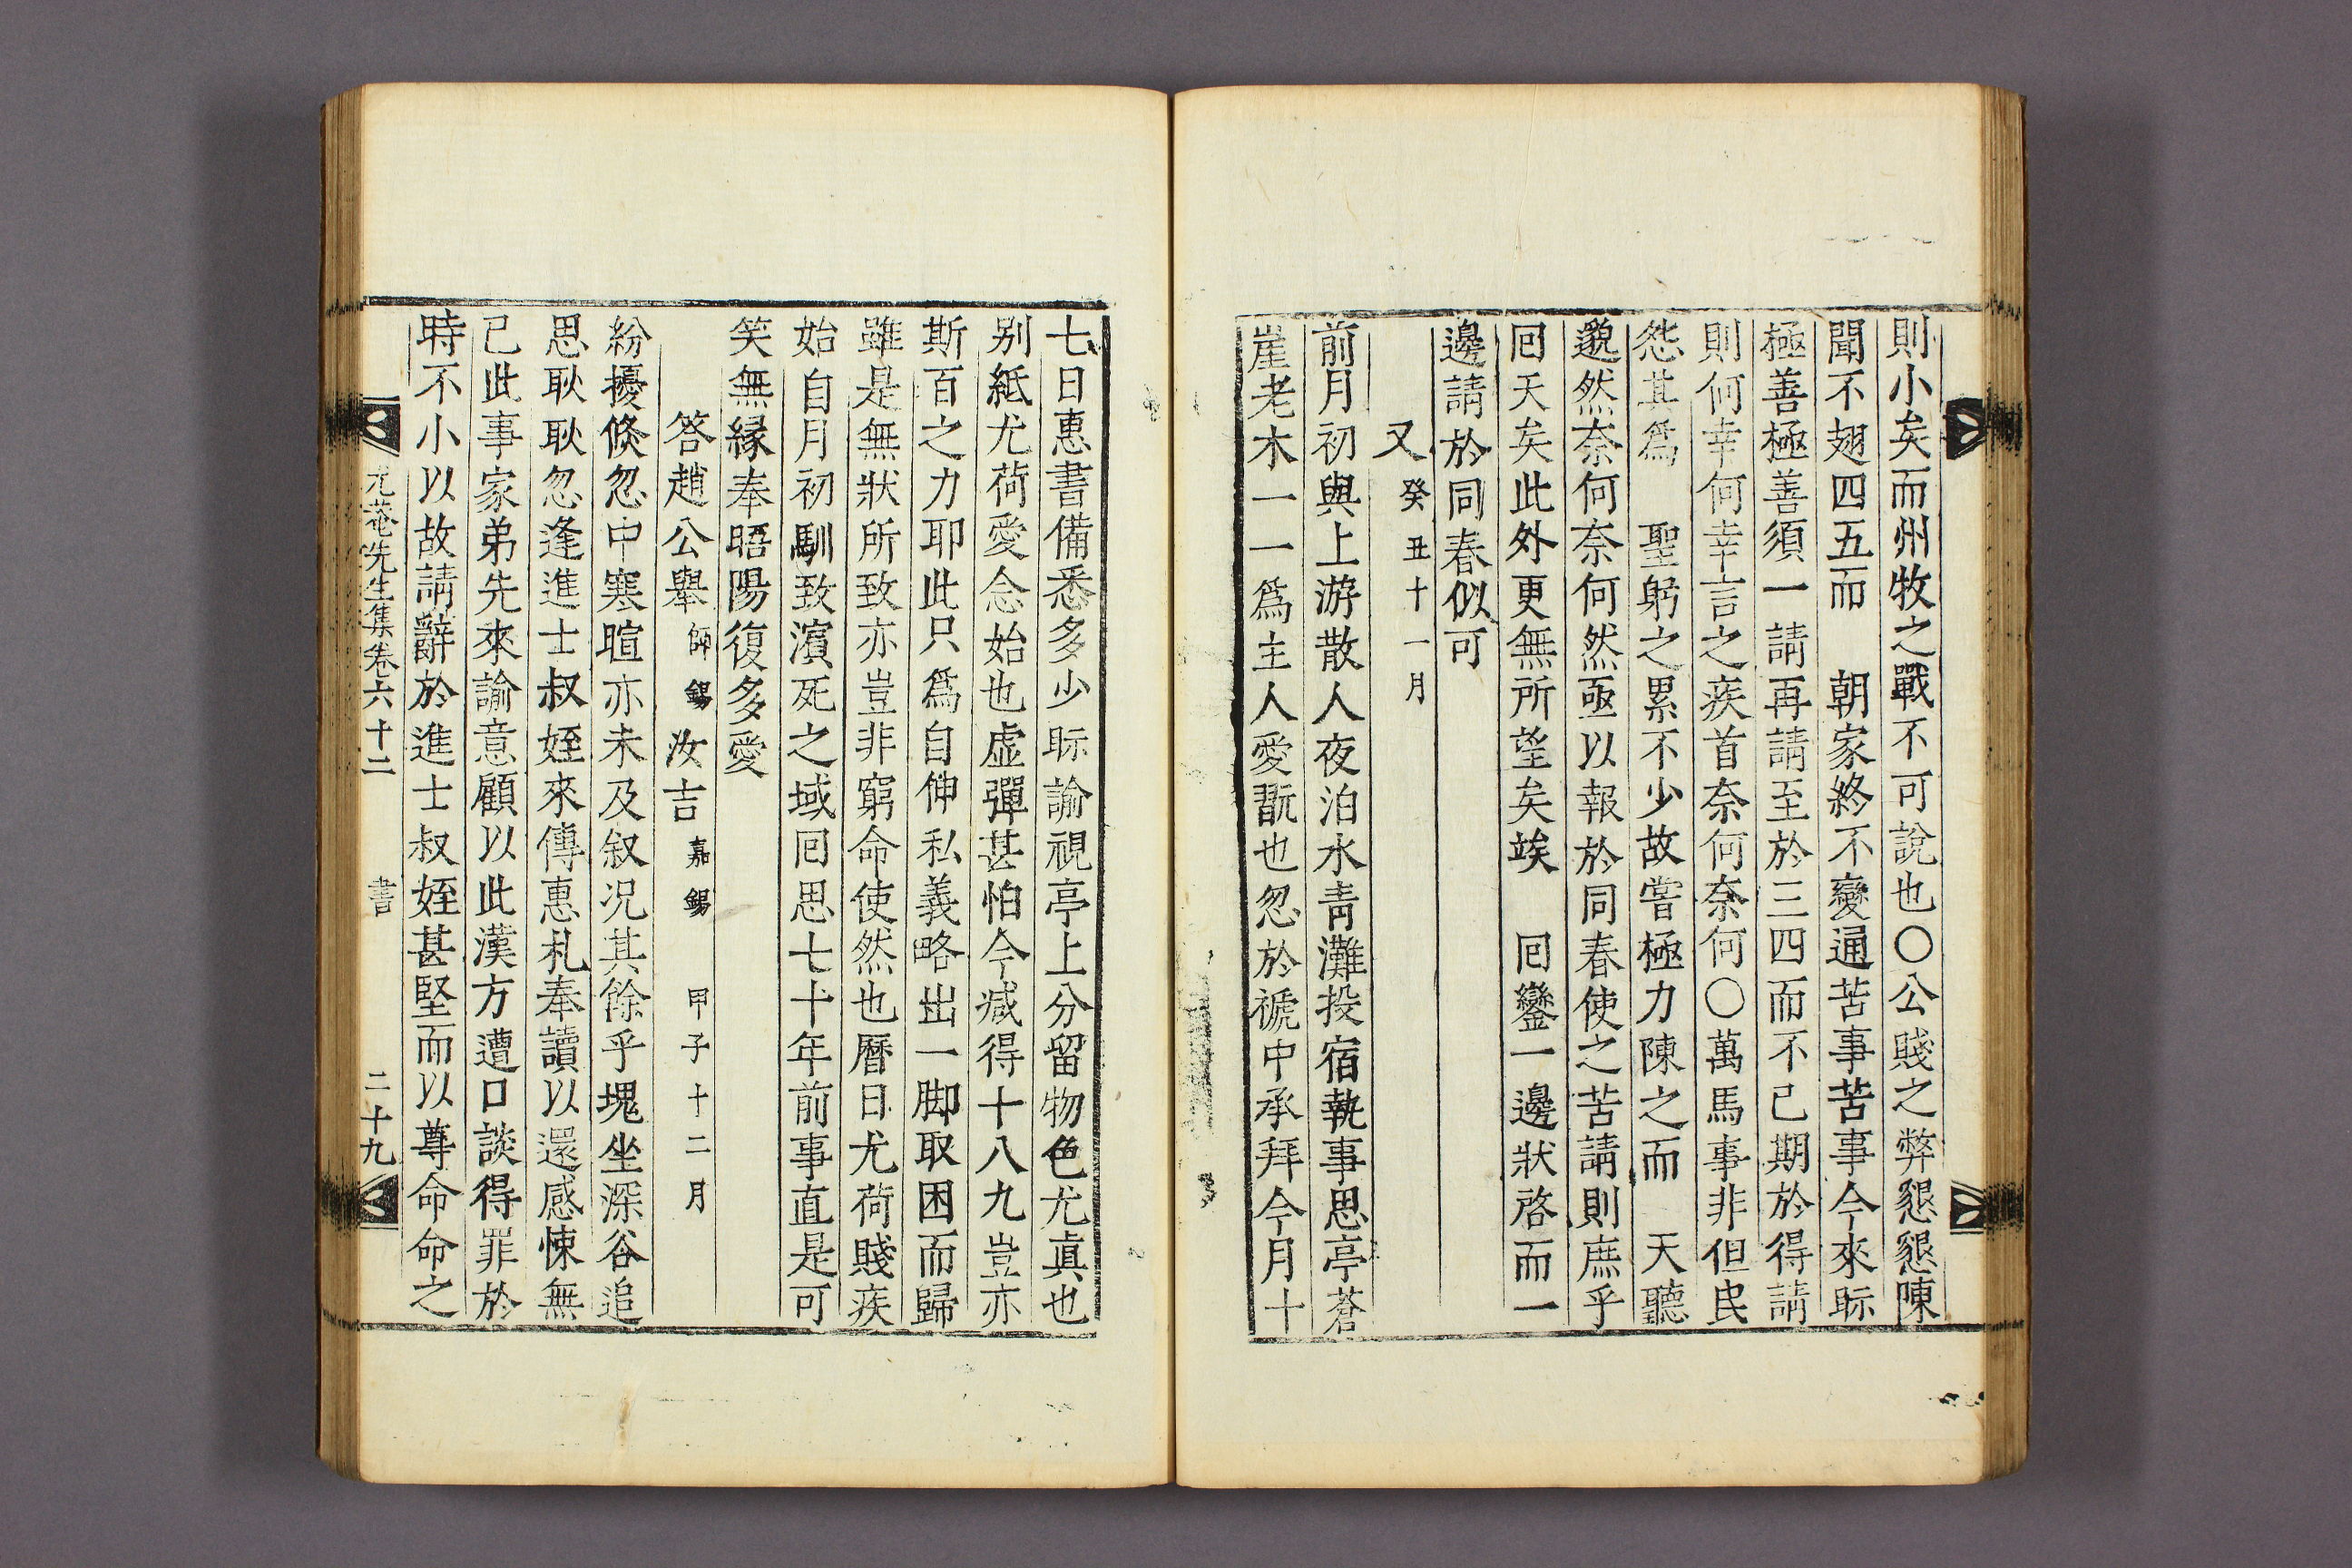 則小矣而州牧之戰不可說也〇公賤之弊懇懇陳
聞不翅四五而　朝家終不變通苦事苦事今來眎
極善極善須一請再請至於三四而不已期於得請
則何幸何幸言之疾首奈何奈何〇萬馬事非但民
怨其爲　聖躬之累不少故嘗極力陳之而　天聽
邈然奈何奈何然亟以報於同春使之苦請則庶乎
回天矣此外更無所望矣竢　回鑾一邊狀啓而一
邊請於同春似可
又 癸丑十一月
前月初與上游散人夜泊水靑灘投宿執事思亭蒼
崖老木一一爲主人愛翫也忽於褫中承拜今月十
七日惠書備悉多少眎諭視亭上分留物色尤眞也
別紙尤荷愛念始也虛彈甚怕今減得十八九豈亦
斯百之力耶此只爲自伸私義略出一脚取困而歸
雖是無狀所致亦豈非窮命使然也曆日尤荷賤疾
始自月初馴致濱死之域回思七十年前事直是可
笑無緣奉晤陽復多愛
答趙公擧 師錫 汝吉 嘉錫　甲子十二月
紛擾倏忽中寒暄亦未及叙況其餘乎塊坐深谷追
思耿耿忽逢進士叔姪來傳惠札奉讀以還感悚無
已此事家弟先來諭意顧以此漢方遭口談得罪於
時不小以故請辭於進士叔姪甚堅而以尊命命之
尤菴先生集卷六十二　書　二十九